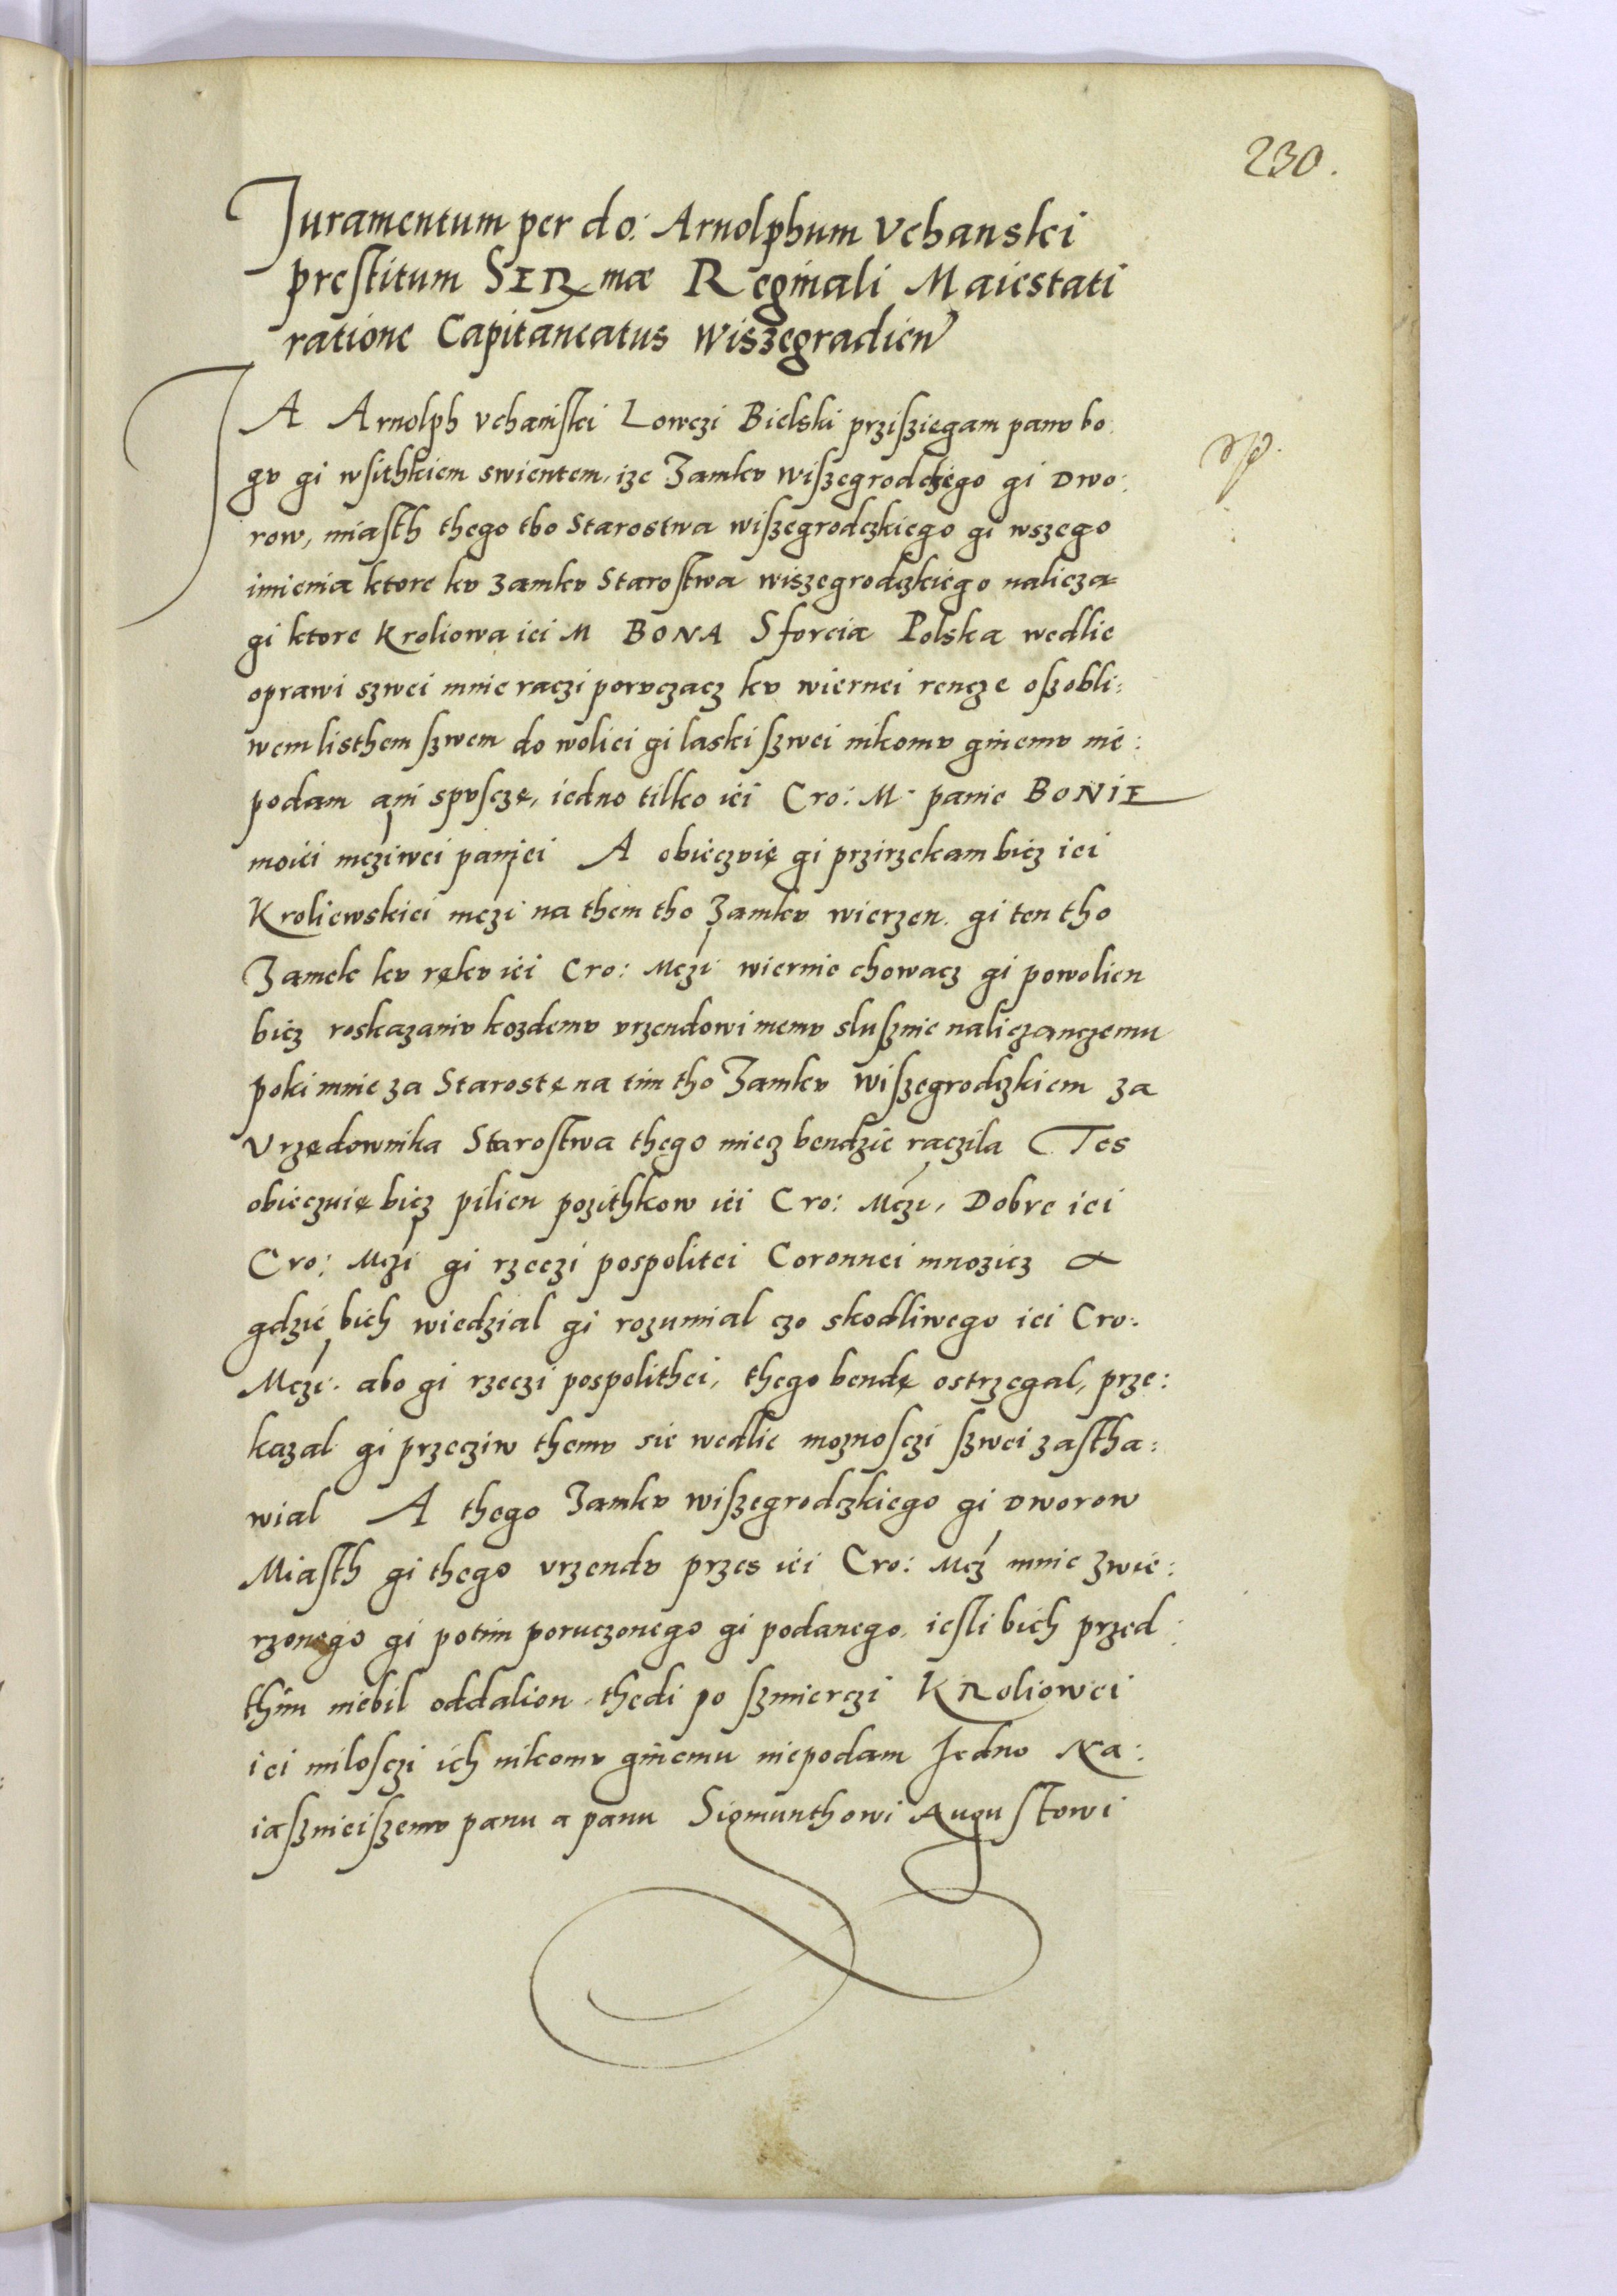 230.
Juramentum per do: Arnolphum Vchanski
prestitum SERmæ Reginali Maiestati
ratione Capitaneatus Wiszegradien
JA Arnolph Vchanski Lowczi Bielski prziszięgam panv bo:
gv gi wsithkiem swientem, ize Zamkv Wiszegrodczkiego gi Dwo:
row, miasth thego tho Starostwa wiszegrodczkiego gi wszego
imienia ktore kv zamkv Starostwa wiszegrodczkiego nalicza=
gi ktore Kroliowa iei M BONA Sforcia Polska wedlie
oprawi szwei mnie raczi porvczacz kv wiernei rencze oszobli:
wem listhem szwem do woliei gi laski szwei nikomv ginemv nie:
podam ani spvsczę, iedno tilko iei Cro: M. panie BONIE
moiei mcziwei paniei A obieczvię gi przirzekam bicz iei
Kroliewskiei mczi na them tho Zamkv wierzen. gi ten tho
Zamek kv rękv iei Cro: Mczi wiernie chowacz gi powolien
bicz roskazaniv kozdemv vrzendowi memv slusznie naliczanczemu
poki mnie za Starostę na tim tho Zamkv Wiszegrodczkiem za
Vrzędownika Starostwa thego miecz bendzie raczila Tes
obieczuię bicz pilien pozithkow iei Cro: Mczi, Dobre iei
Cro: Mczi gi rzeczi pospolitei Coronnei mnozicz &
gdzie bich wiedzial gi rozumial czo skodliwego iei Cro:
Mczi. abo gi rzeczi pospolithei, thego bendę ostrzegal, prze:
kazal gi przecziw themv sie wedlie moznosczi szwei zastha:
wial A thego Zamkv wiszegrodczkiego gi Dworow
Miasth gi thego vrzendv przes iei Cro: Mcz mnie zwie:
rzonego gi potim poruczonego gi podanego, iesli bich przed
thim niebil oddalion thedi po szmierczi KRoliowei
iei milosczi ich nikomv ginemu niepodam Jedno Na:
iaszniejszemv panu a panu Sigmunthowi Augustowi